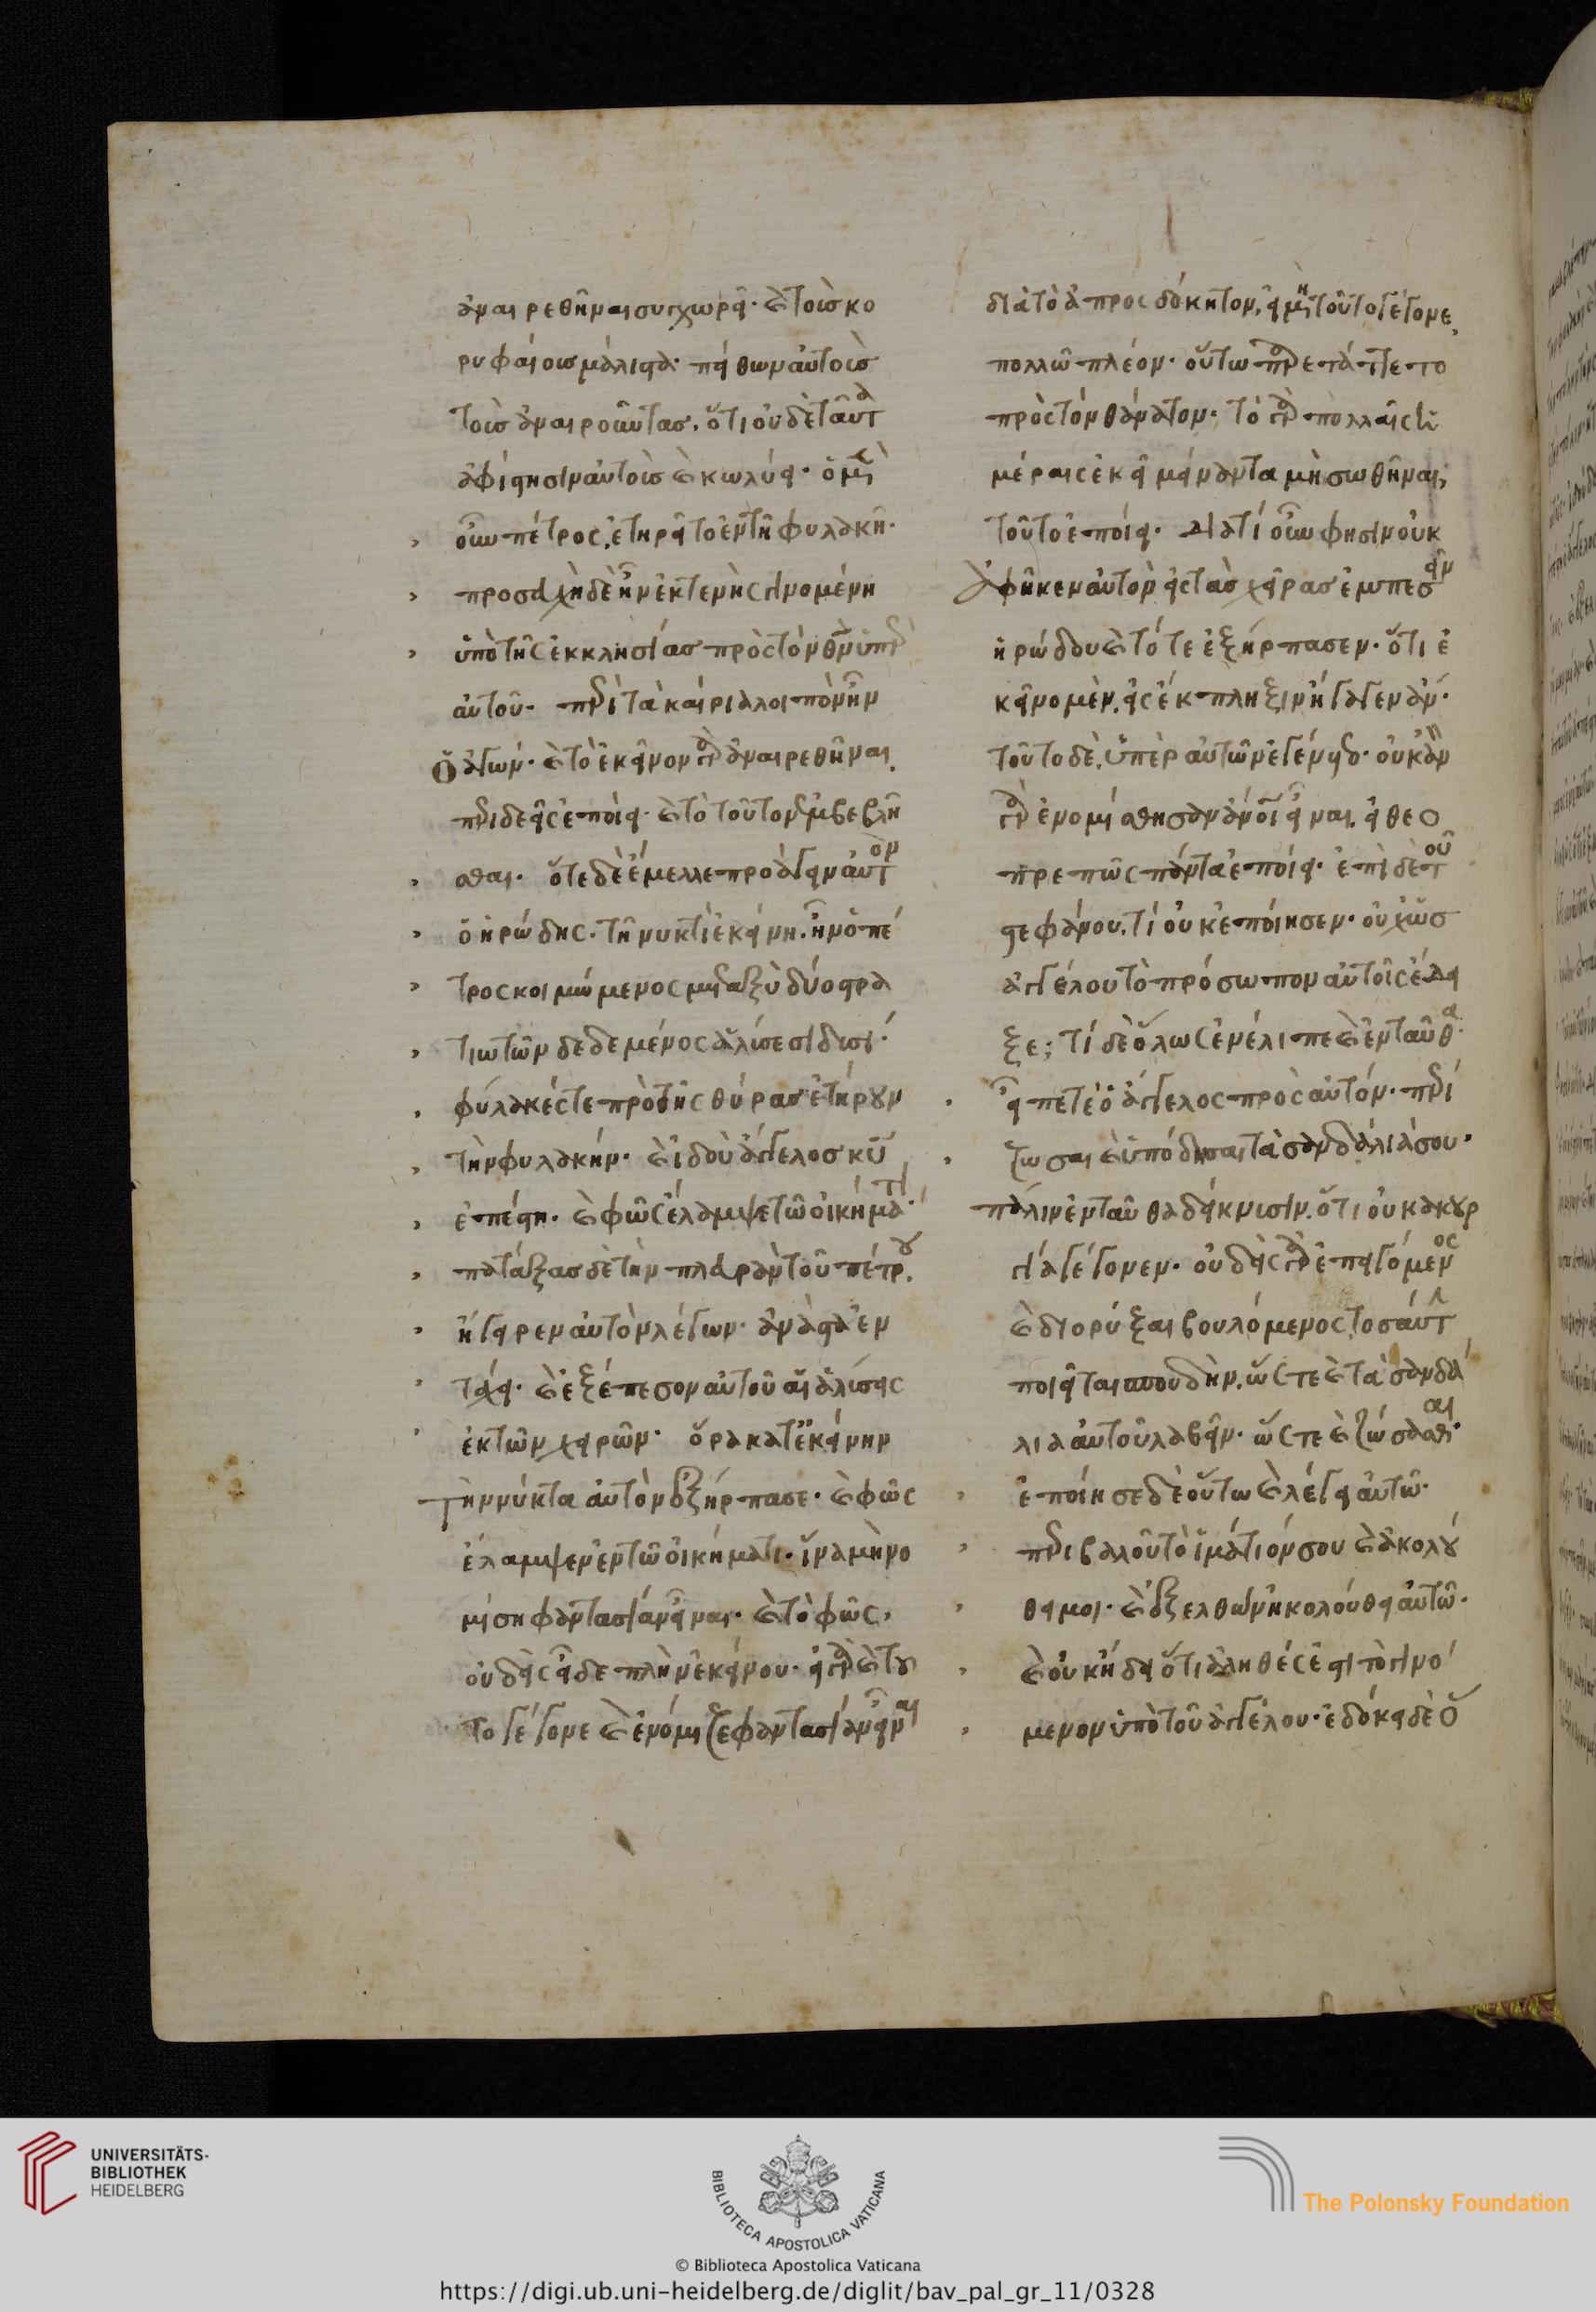 ἀναιρεθῆναι συγχωρεῖ· καὶ τοῖς κο
ρυφαίοις μάλιστα· πείθων αὐτοῖς
τοῖς ἀναιροῦντας. ὅτι οὐδὲ ταῦτα
ἀφίστησιν αὐτοῖς καὶ κωλύει· ὁ μὲν
οὖν πέτρος, ἐτηρεῖτο ἐν τῆ φυλακῆ·
προσευχὴ δὲ ἦν ἐκτενὴς γινομένη
ὑπὸ τῆς ἐκκλησίας πρὸς τὸν θν ὑπὲρ
αὐτοῦ· περὶ τὰ καίρια λοιπὸν ἦν
ὁ ἀγών· καὶ τὸ ἐκεῖνον γὰρ ἀναιρεθῆναι,
περιδεεῖς ἐποίει· καὶ τὸ τοῦτον ἐμβεβλῆ
σθαι. ὅτε δὲ ἔμελλε προάγειν αὐτὸν
ὁ ἡρώδης. τῆ νυκτὶ ἐκείνη. ἦν ὁ πέ
τρος κοιμώμενος μεταξὺ δύο στρα
τιωτῶν δεδεμένος ἁλύσεσι δυσί·
φύλακές τε πρὸ τῆς θύρας ἐτήρουν
τὴν φυλακήν· καὶ ἰδοὺ ἄγγελος κυ
ἐπέστη. καὶ φῶς ἔλαμψε τῶ οἰκήματι·
πατάξας δὲ τὴν πλευρὰν τοῦ πέτρου.
ἤγειρεν αὐτὸν λέγων· ἀνάστα ἐν
τάχει· καὶ ἐξέπεσον αὐτοῦ αἱ ἁλύσεις
ἐκ τῶν χειρῶν· ὅρα κατ' ἐκείνην
τὴν νύκτα αὐτὸν ἐξήρπασε· καὶ φῶς
ἔλαμψεν ἐν τῶ οἰκήματι. ἵνα μὴ νο
μίση φαντασίαν εἶναι· καὶ τὸ φῶς,
οὐδεὶς εἶδε πλὴν ἐκείνου· εἰ γὰρ καὶ του
το γέγονε καὶ ἐνόμιζε φαντασίαν εἶναι
διὰ τὸ ἀπροσδόκητον, εἰ μὴ τοῦτο γέγονε,
πολλῶ πλέον· οὕτω παρετάττετο
πρὸς τὸν θάνατον· τὸ γὰρ πολλαῖς ἡ
μέραις ἐκεῖ μείναντα μὴ σωθῆναι,
τοῦτο ἐποίει. διατί οὖν φησιν οὐκ
ἀφῆκεν αὐτὸν εἰς τὰς χεῖρας ἐμπεσεῖν
ἡρώδου καὶ τότε ἐξήρπασεν. ὅτι ἐ
κεῖνο μὲν, εἰς ἔκπληξιν ἤγαγεν ἄν·
τοῦτο δὲ, ὑπὲρ αὐτῶν ἐγένετο· οὐκ ἂν
γὰρ ἐνομίσθησαν ἄνοι εἶναι, εἰ θεο
πρεπῶς πάντα ἐποίει. ἐπὶ δὲ τοῦ
στεφάνου. τί οὐκ ἐποίησεν. οὐχ ὡς
ἀγγέλου τὸ πρόσωπον αὐτοῖς ἔδει
ξε; τί δὲ ὅλως ἐνέλιπε καὶ ἐνταῦθα·
εἶπέ τε ὁ ἄγγελος πρὸς αὐτόν· περί
ζωσαι καὶ ὑπόδησαι τὰ σανδάλιά σου·
πάλιν ἐνταῦθα δείκνυσιν, ὅτι οὐ κακουρ
γία γέγονεν. οὐδεὶς γὰρ ἐπειγόμενος
καὶ διορύξαι βουλόμενος, τοσαύτην
ποιεῖται σπουδὴν, ὥστε καὶ τὰ σανδά
λια αὐτοῦ λαβεῖν. ὥστε καὶ ζώσασθαι·
ἐποίησε δὲ οὕτω καὶ λέγει αὐτῶ·
περιβαλοῦ τὸ ἱμάτιόν σου καὶ ἀκολού
θει μοι. καὶ ἐξελθὼν ἠκολούθει αὐτῶ.
καὶ οὐκ ἤδει ὅτι ἀληθές ἐστι τὸ γινό
μενον ὑπὸ τοῦ ἀγγέλου. ἐδόκει δὲ ὅ
UNIVERSITÄTS-
BIBLIOTHEK
HEIDELBERG
BIBLIOTECA APOSTOLICA VATICANA
The Polonsky Foundation
© Biblioteca Apostolica Vaticana
https://digi.ub.uni-heidelberg.de/diglit/bav_pal_gr_11/0328